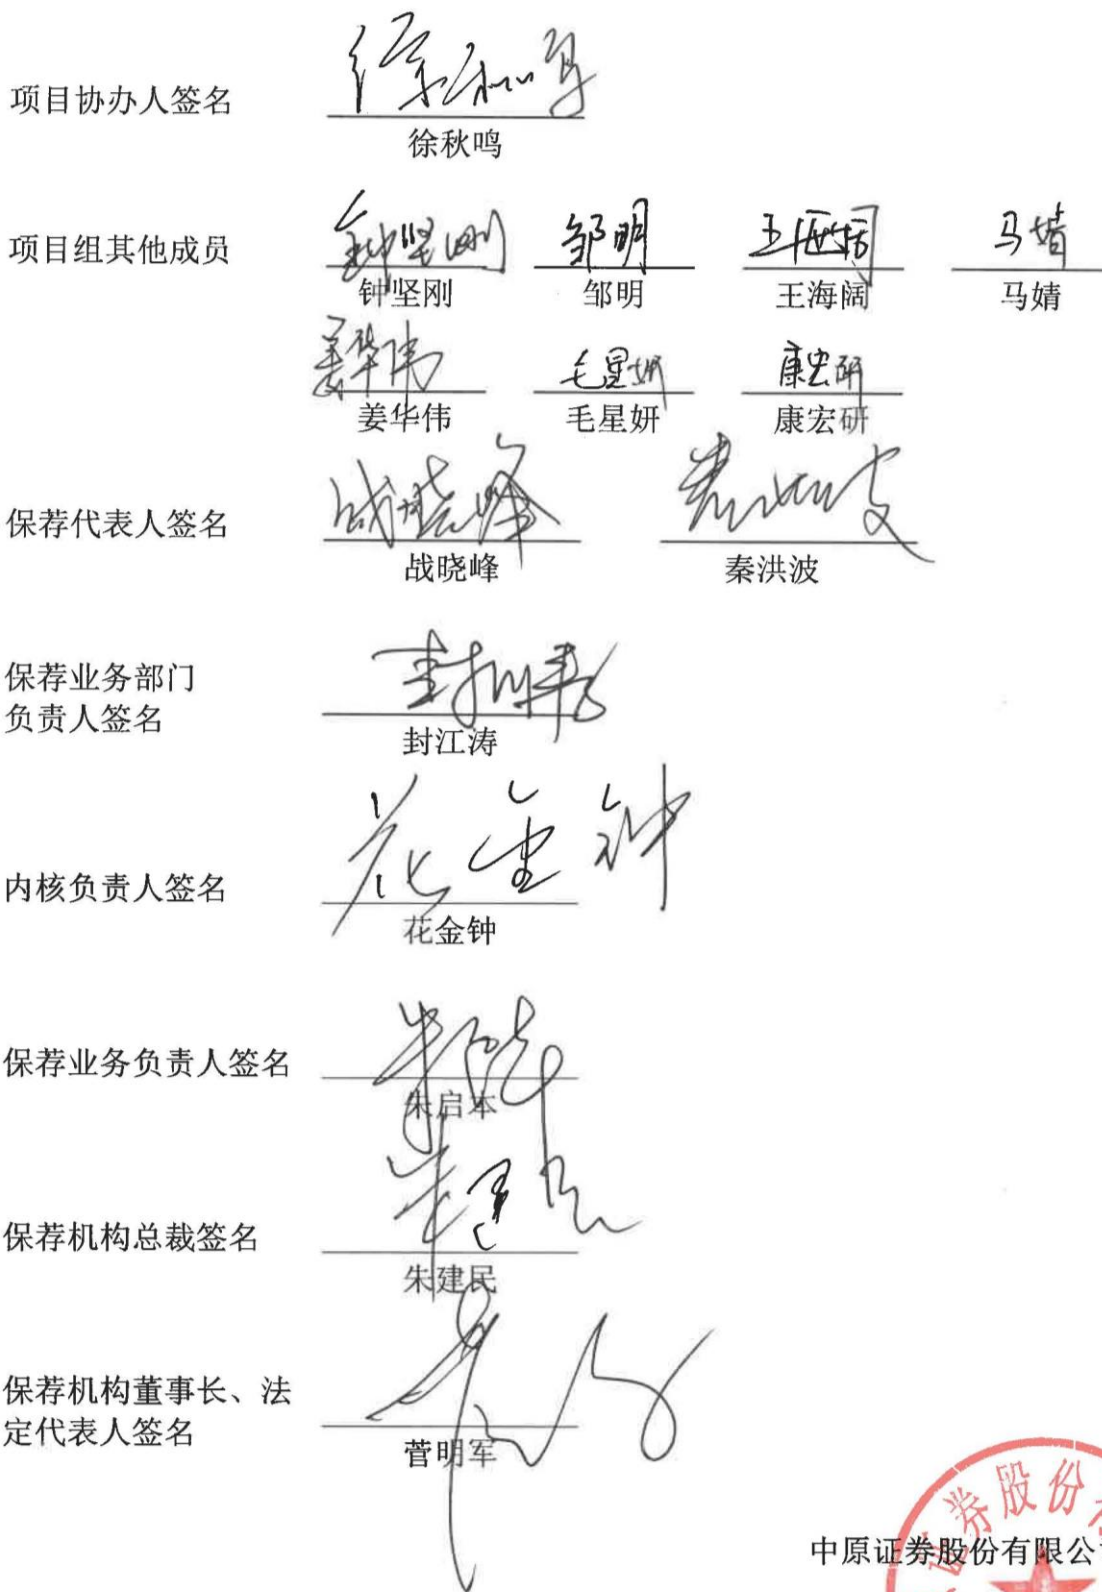 项目协办人签名
徐秋鸣
项目组其他成员
钟坚刚 邹明 王海阔 马婧
姜华伟 毛星妍 康宏研
保荐代表人签名
战晓峰 秦洪波
保荐业务部门
负责人签名
封江涛
内核负责人签名
花金钟
保荐业务负责人签名
朱启本
保荐机构总裁签名
朱建民
保荐机构董事长、法
定代表人签名
菅明军
证券股份有
中原证券股份有限公